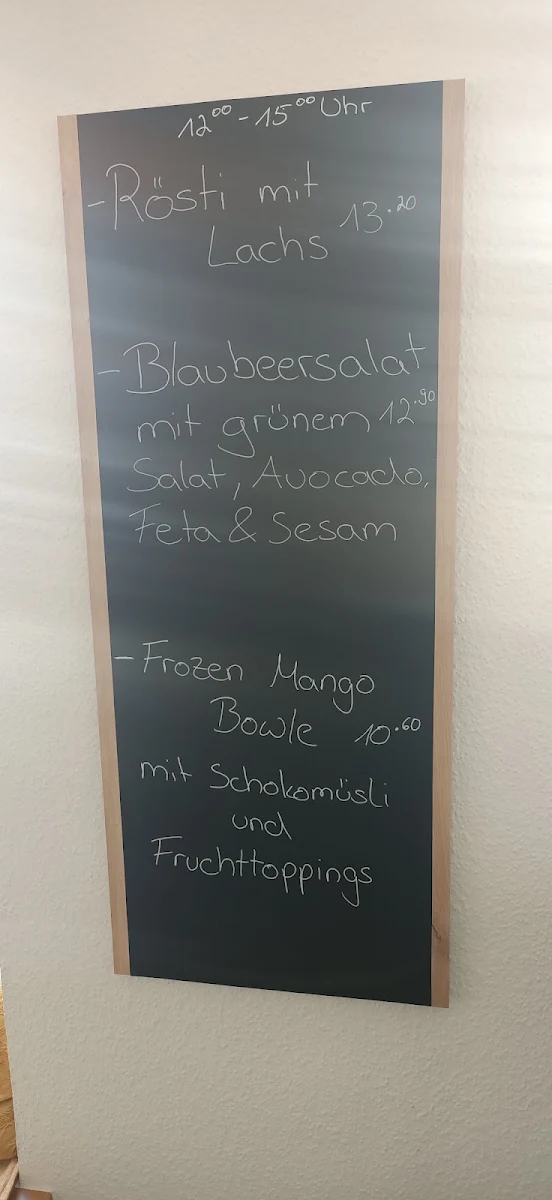 12⁰⁰ - 15⁰⁰ Uhr
- Rösti mit
Lachs 13.20
- Blaubeersalat
mit grünem 12.90
Salat, Avocado,
Feta & Sesam
- Frozen Mango
Bowle 10.60
mit Schokomüsli
und
Fruchttoppings